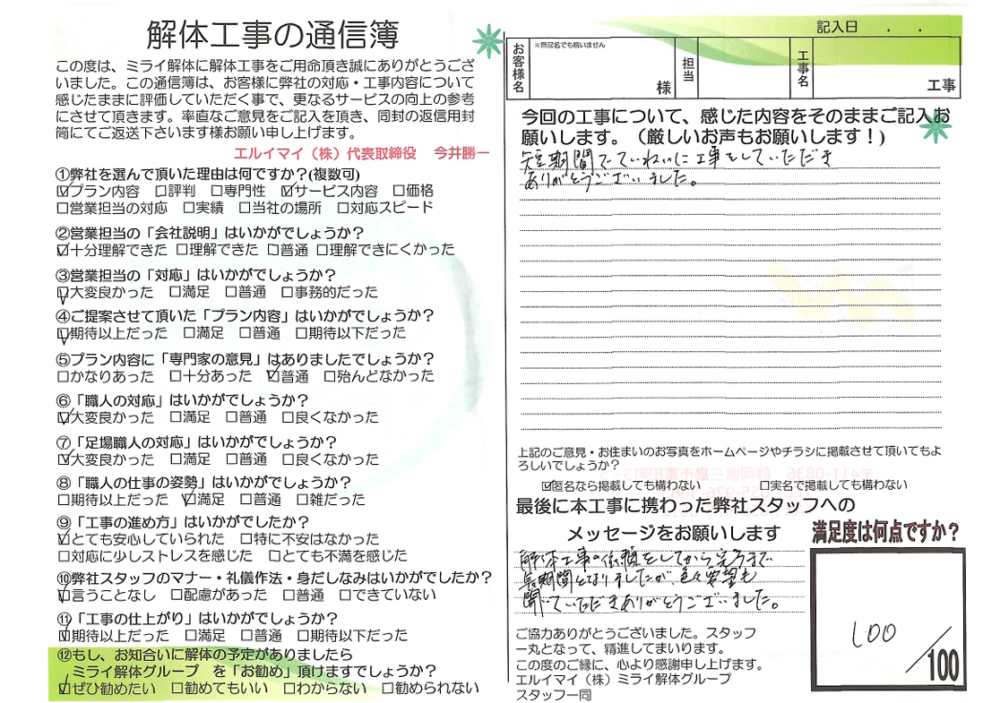 解体工事の通信簿
この度は、ミライ解体に解体工事をご用命頂き誠にありがとうござ
いました。この通信簿は、お客様に弊社の対応・工事内容について
感じたままに評価していただく事で、更なるサービスの向上の参考
にさせて頂きます。率直なご意見をご記入を頂き、同封の返信用封
筒にてご返送下さいます様お願い申し上げます。
エルイマイ(株)代表取締役 今井勝一
①弊社を選んで頂いた理由は何ですか?(複数可)
☑プラン内容 □評判 □専門性 ☑サービス内容 □価格
□営業担当の対応 □実績 □当社の場所 □対応スピード
②営業担当の「会社説明」はいかがでしょうか?
☑十分理解できた □理解できた □普通 □理解できにくかった
③営業担当の「対応」はいかがでしょうか?
☑大変良かった □満足 □普通 □事務的だった
④ご提案させて頂いた「プラン内容」はいかがでしょうか?
☑期待以上だった □満足 □普通 □期待以下だった
⑤プラン内容に「専門家の意見」はありましたでしょうか?
□かなりあった □十分あった ☑普通 □殆んどなかった
⑥「職人の対応」はいかがでしょうか?
☑大変良かった □満足 □普通 □良くなかった
⑦「足場職人の対応」はいかがでしょうか?
☑大変良かった □満足 □普通 □良くなかった
⑧「職人の仕事の姿勢」はいかがでしょうか?
□期待以上だった ☑満足 □普通 □雑だった
⑨「工事の進め方」はいかがでしたか?
☑とても安心していられた □特に不安はなかった
□対応に少しストレスを感じた □とても不満を感じた
⑩弊社スタッフのマナー・礼儀作法・身だしなみはいかがでしたか?
☑言うことなし □配慮があった □普通 □できていない
⑪「工事の仕上がり」はいかがでしょうか?
☑期待以上だった □満足 □普通 □期待以下だった
⑫もし、お知合いに解体の予定がありましたら
ミライ解体グループ を「お勧め」頂けますでしょうか?
☑ぜひ勧めたい □勧めてもいい □わからない □勧められない
記入日 . .
お客様名 ※無記名でも構いません 様 担当 工事名 工事
今回の工事について、感じた内容をそのままご記入お
願いします。(厳しいお声もお願いします!)
短期間でていねいに工事をしていただき
ありがとうございました。
上記のご意見・お住まいのお写真をホームページやチラシに掲載させて頂いてもよ
ろしいでしょうか?
☑匿名なら掲載しても構わない □実名で掲載しても構わない
最後に本工事に携わった弊社スタッフへの
メッセージをお願いします
解体工事の依頼をしてから完了まで
長期間となりましたが、色々要望も
聞いていただきありがとうございました。
満足度は何点ですか?
100/100
ご協力ありがとうございました。スタッフ
一丸となって、精進してまいります。
この度のご縁に、心より感謝申し上げます。
エルイマイ(株)ミライ解体グループ
スタッフ一同